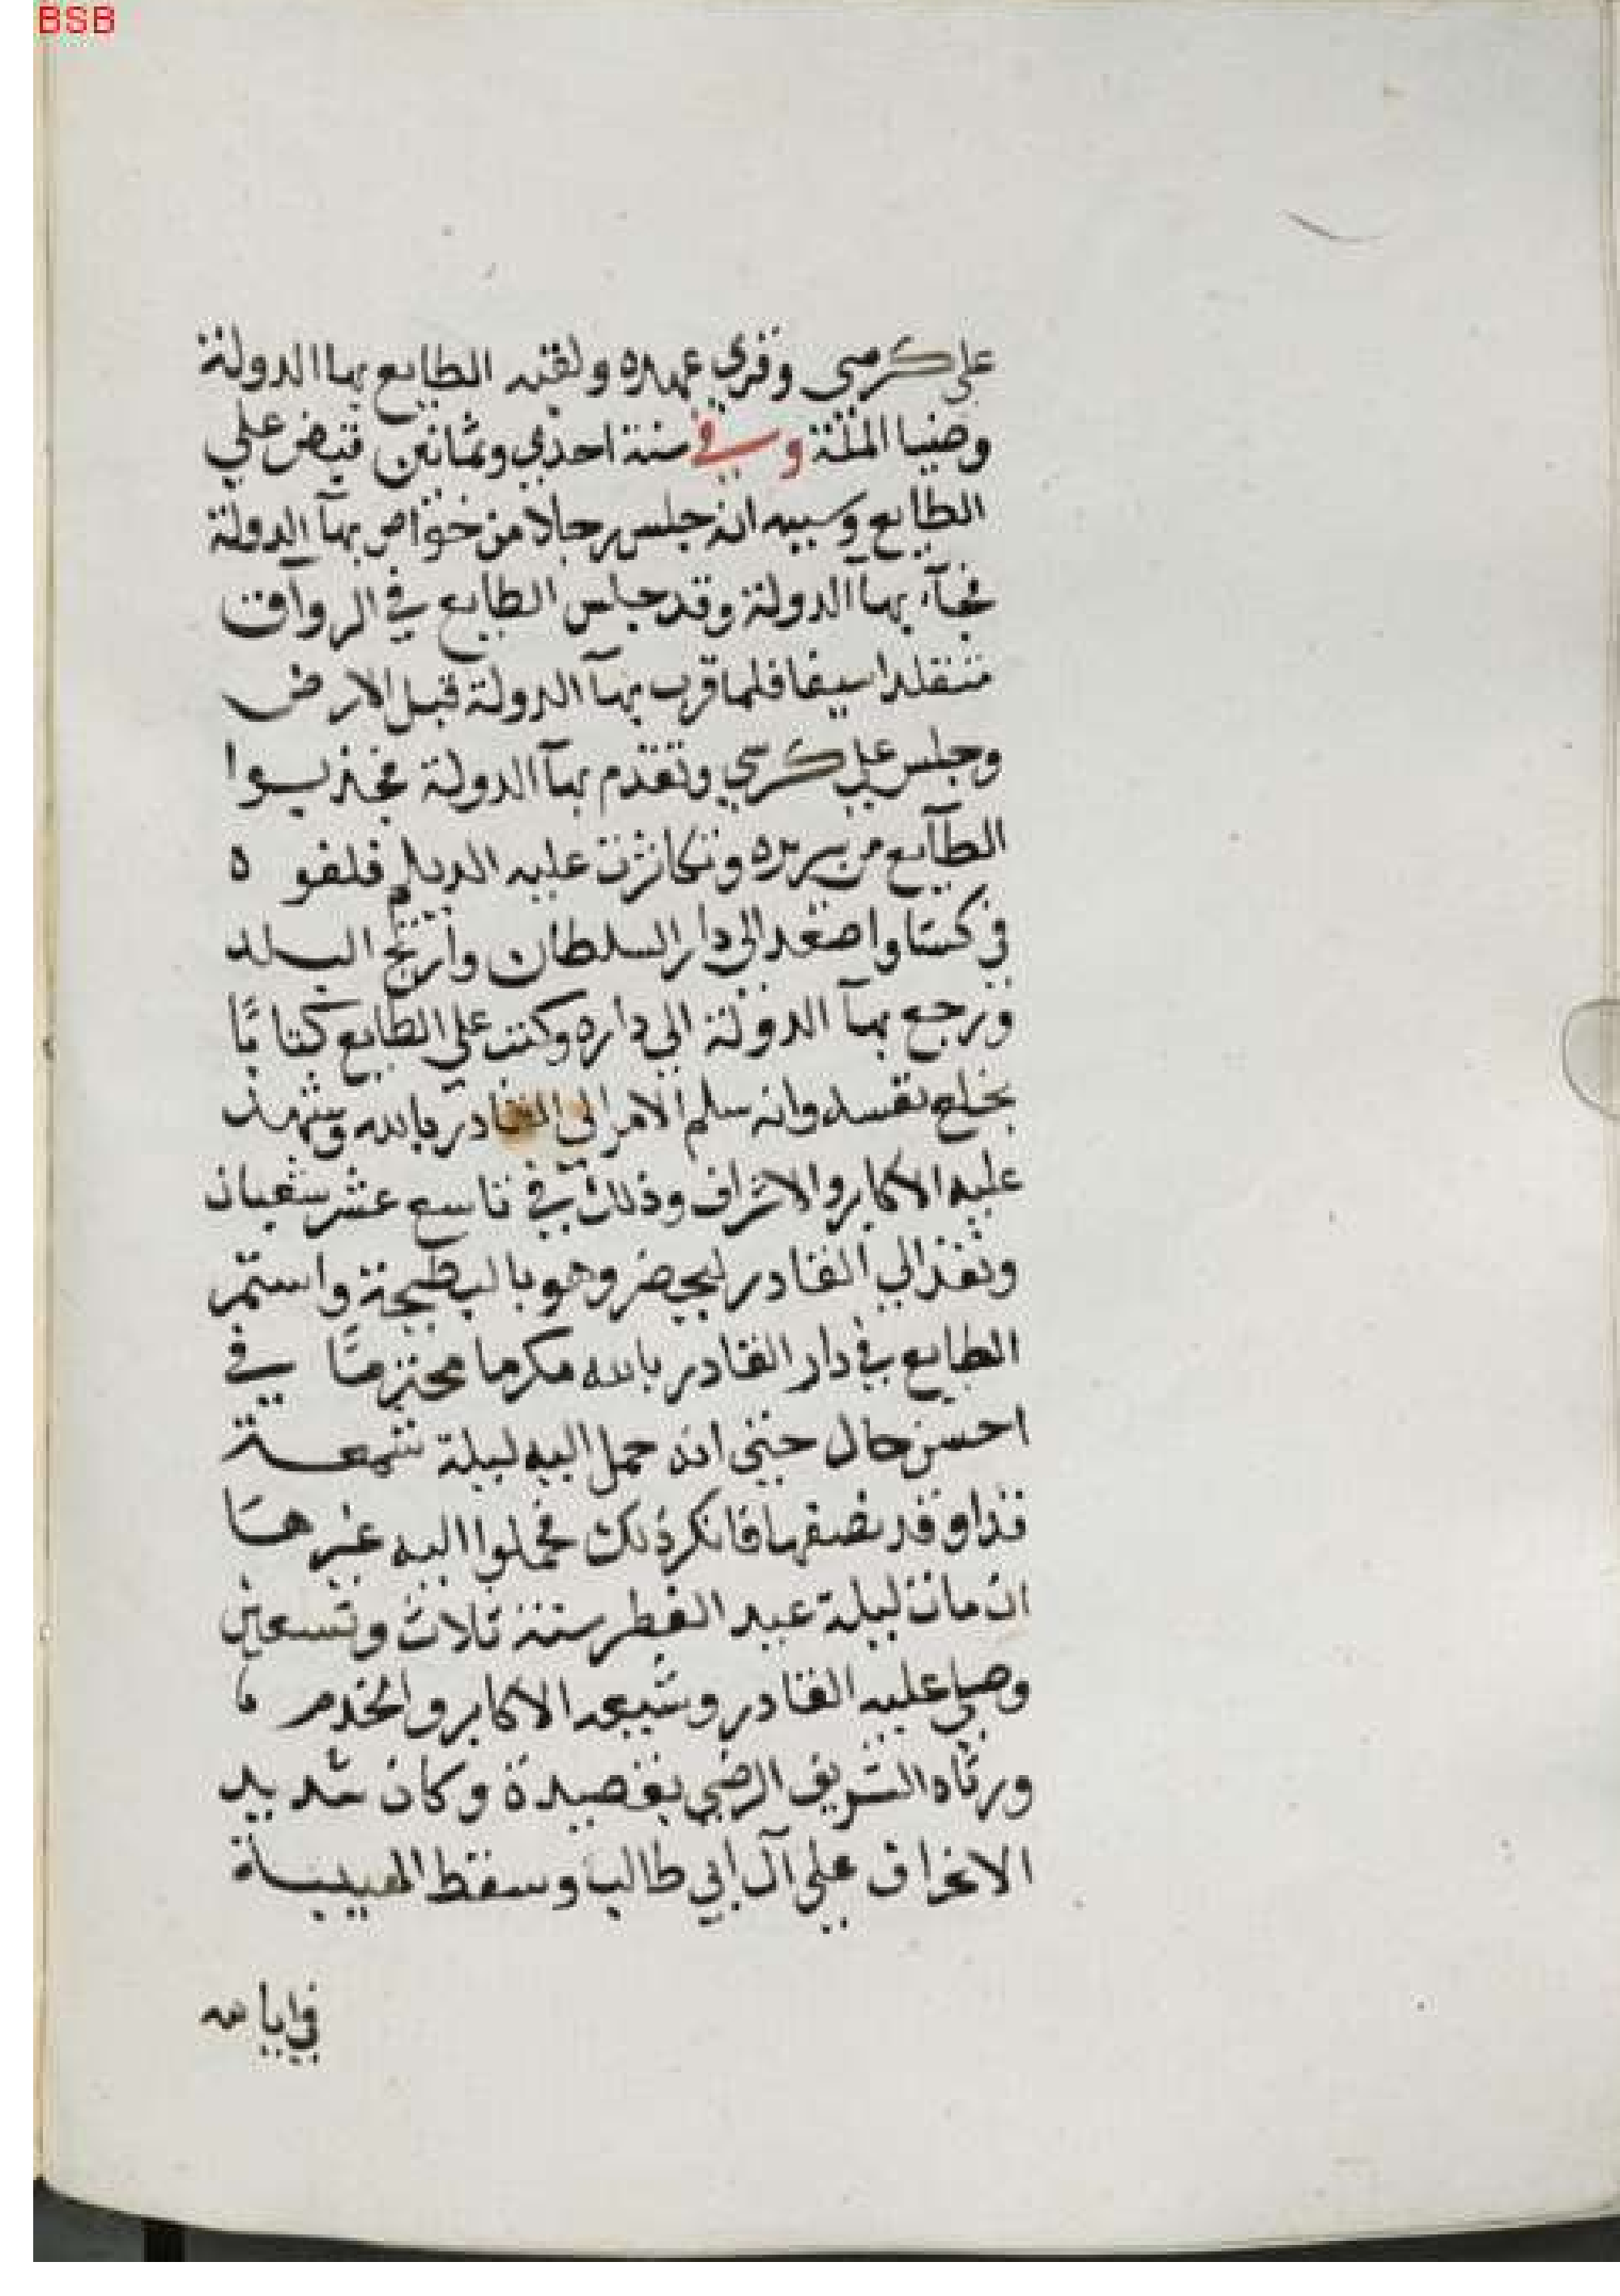 BSB
على كرسي وقري عهده ولقبه الطايع بهاالدولة
وضيا الملة وفي سنة احدي وثمانين قبض علي
الطايع وسببه انه حبس رجلا من خواص بهآالدولة
فجآء بهآالدولة وقد جلس الطايع في الرواق
متقلدا سيفا فلما قرب بهآ الدولة قبل الارض
وجلس علي كرسي وتقدم بهآالدولة فجذبوا
الطآيع من سريره وتكاثرت عليه الديلم فلفوه
في كسا واصعد الي دار السلطان وارتج البلد
ورجع بهآ الدولة الي داره وكتب علي الطايع كتابًا
بخلع نفسه وانه سلم الامر الي القادر بالله وشهد
عليه الاكابر والاشراف وذلك في تاسع عشر شعبان
ونفذ الي القادر ليحضر وهو بالبطيحة واستمر
الطايع في دار القادر بالله مكرما محترمًا في
احسن حال حتي انه حمل اليه ليلة شمعة
قد اوقد نصفها فانكر ذلك فحملوا اليه غيرها
ان مات ليلة عيد الفطر سنة ثلاث وتسعين
وصلي عليه القادر وشيعه الاكابر والخدم
ورثاه الشريف الرضي بقصيدة وكان شديد
الانحراف علي آل ابي طالب وسقط الهيبة
في ايامه